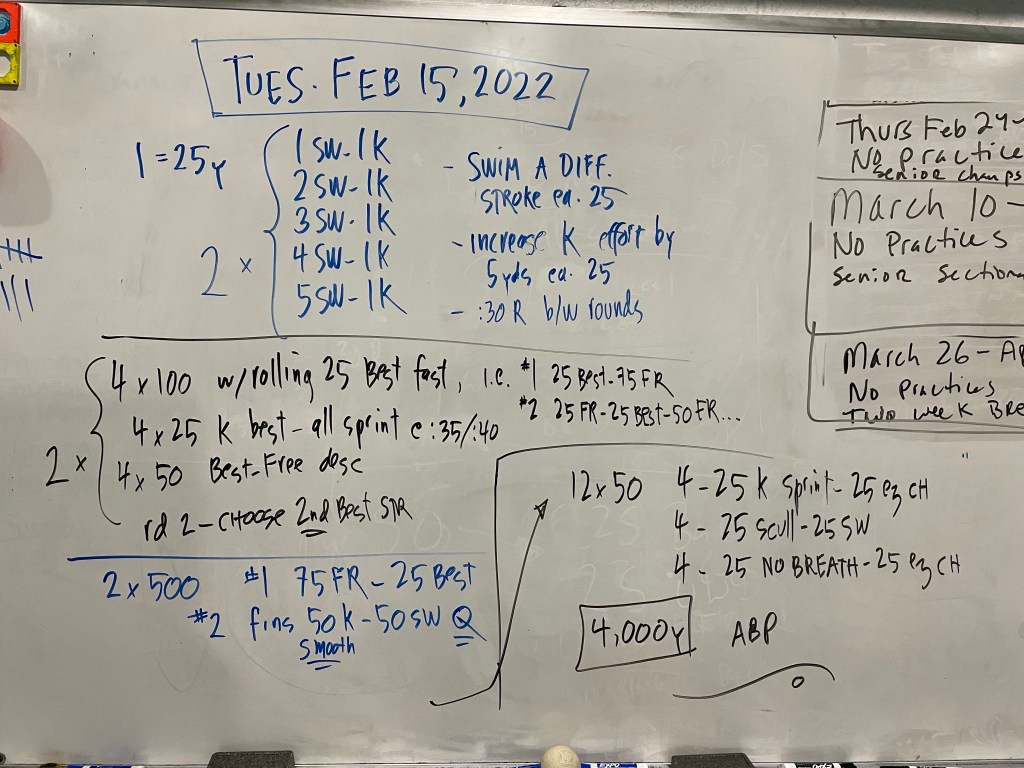 TUES. FEB 15, 2022
1 = 25y
2 x
1 SW - 1K
2 SW - 1K
3 SW - 1K
4 SW - 1K
5 SW - 1K
- SWIM A DIFF.
STROKE ea. 25
- increase K effort by
5yds ea. 25
- :30 R b/w rounds
2 x
4 x 100 w/rolling 25 Best fast, i.e. #1 25 Best - 75 FR
#2 25 FR - 25 BEST - 50 FR...
4 x 25 K best - all sprint @ :35/:40
4 x 50 Best - Free desc
rd 2 - CHOOSE 2nd Best STR
2 x 500 #1 75 FR - 25 BEST
#2 fins 50 K - 50 SW Q
smooth
12 x 50 4 - 25 K sprint - 25 ez CH
4 - 25 scull - 25 SW
4 - 25 NO BREATH - 25 ez CH
4,000y ABP
Thurs Feb 24 -
No practice
senior champs
March 10 -
No Practices
senior section
March 26 - Ap
No Practices
Two week BRE